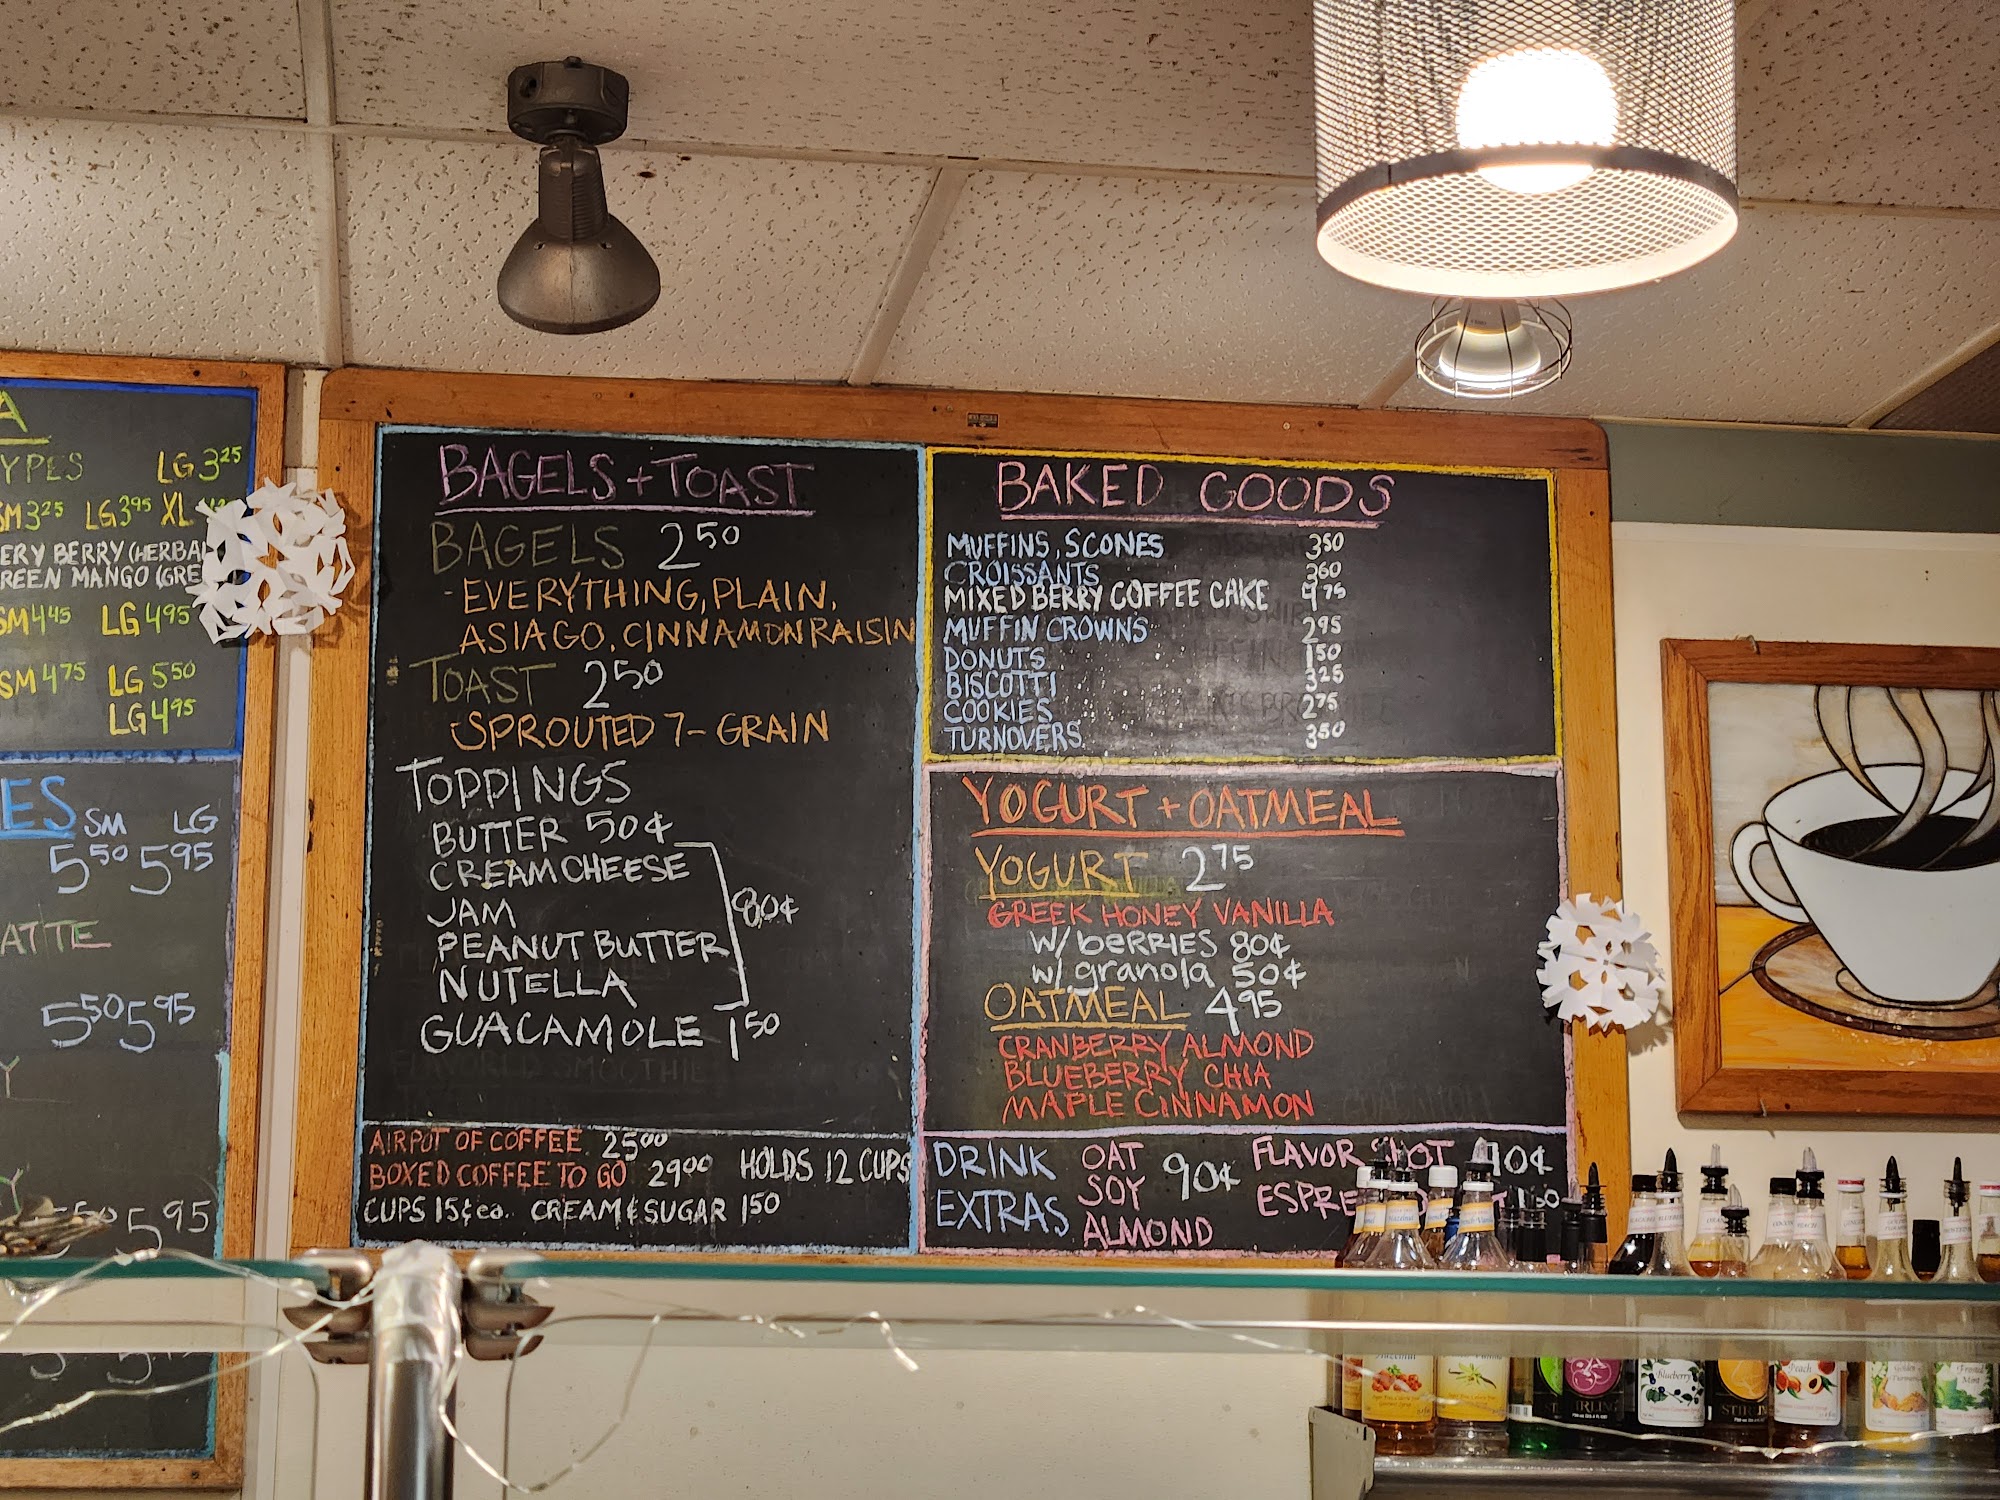 A
YPES LG 3 25
SM 3 25 LG 3 95 XL
ERY BERRY (HERBA
REEN MANGO (GRE
SM 4 45 LG 4 95
SM 4 75 LG 5 50
LG 4 95
ES SM LG
5 50 5 95
ATTE
5 50 5 95
Y
5 95
BAGELS + TOAST
BAGELS 2 50
- EVERYTHING, PLAIN,
ASIAGO, CINNAMON RAISIN
TOAST 2 50
- SPROUTED 7-GRAIN
TOPPINGS
BUTTER 50¢
CREAM CHEESE
JAM 80¢
PEANUT BUTTER
NUTELLA
GUACAMOLE 1 50
AIRPOT OF COFFEE 25 00
BOXED COFFEE TO GO 29 00 HOLDS 12 CUPS
CUPS 15¢ ea. CREAM & SUGAR 1 50
BAKED GOODS
MUFFINS, SCONES 3 50
CROISSANTS 3 60
MIXED BERRY COFFEE CAKE 4 75
MUFFIN CROWNS 2 95
DONUTS 1 50
BISCOTTI 3 25
COOKIES 2 75
TURNOVERS 3 50
YOGURT + OATMEAL
YOGURT 2 75
GREEK HONEY VANILLA
w/ berries 80¢
w/ granola 50¢
OATMEAL 4 95
CRANBERRY ALMOND
BLUEBERRY CHIA
MAPLE CINNAMON
DRINK EXTRAS
OAT
SOY 90¢
ALMOND
FLAVOR SHOT 90¢
ESPRE
Hazelnut
Vanilla
Blueberry
Peach
Golden Turmeric
Frosted Mint